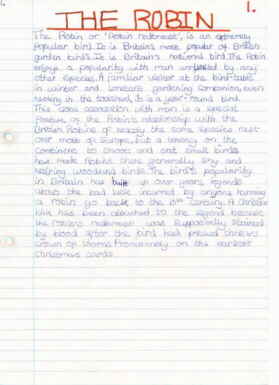 1.
THE ROBIN
The Robin or 'Robin Redbreast', is an extremely
Popular bird. It is Britain's most popular of British
garden birds. It is Britain's national bird. The Robin
enjoys a popularity with man by any
other species. A familiar visitor at the bird-table
in winter and constant gardening companion, even
nesting in the toolshed, it is a year-round bird.
This close association with man is a special
feature of the Robin's relationship with the
British. Robins of nearly the same species nest
over most of Europe, but a tendency on the
Continent to shoot and eat small birds
has made Robins there generally shy and
retiring woodland birds. The bird's popularity
in Britain has built up over years, legends
about the bad luck incurred by anyone harming
a robin go back to the 15th Century. A Christian
link has been attached to the legend because
the Robin's redbreast was supposedly stained
by blood after the bird had pressed Christ's
crown of thorns. Prominently on the earliest
Christmas cards.